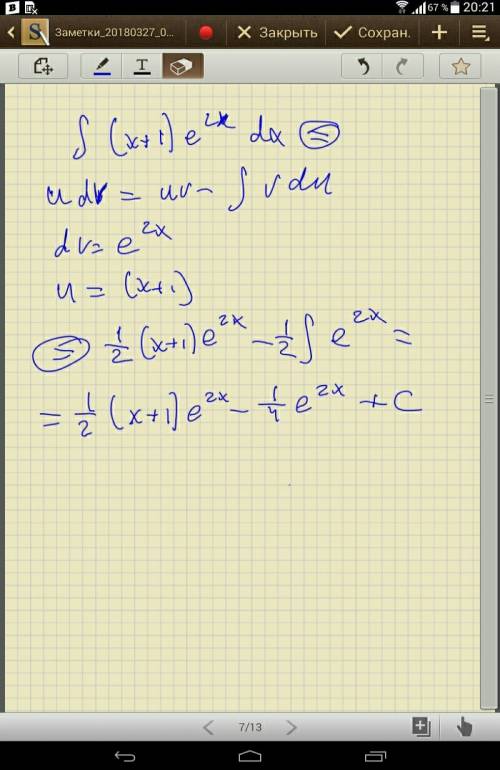 67 % 20:21
Заметки_20180327_0... Закрыть Сохран.
∫ (x+1) e^{2x} dx ⊜
u dv = uv - ∫ v du
dv = e^{2x}
u = (x+1)
⊜ 1/2 (x+1) e^{2x} - 1/2 ∫ e^{2x} =
= 1/2 (x+1] e^{2x} - 1/4 e^{2x} + C
7/13